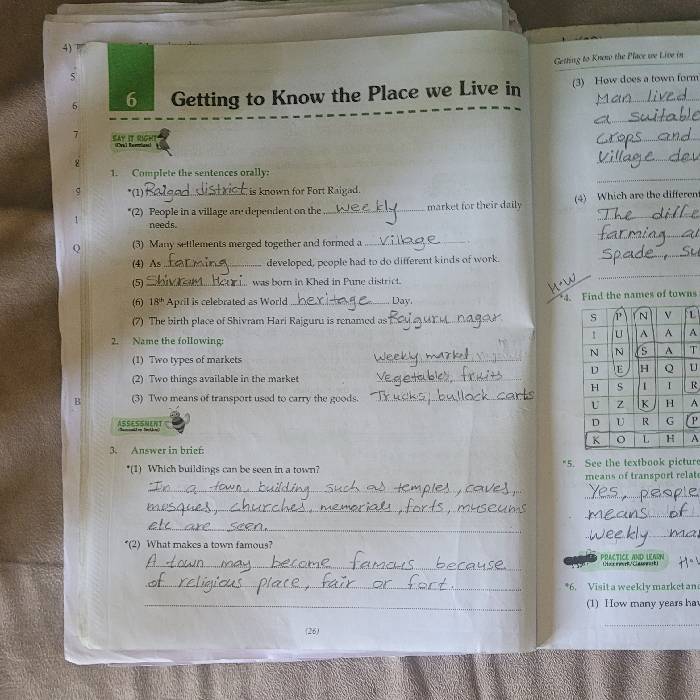 4)
5
6
7
8
9
1
Q
B
6 Getting to Know the Place we Live in
SAY IT RIGHT
(Oral Revision)
1. Complete the sentences orally:
*(1) Raigad district is known for Fort Raigad.
*(2) People in a village are dependent on the weekly market for their daily
needs.
(3) Many settlements merged together and formed a village.
(4) As farming developed, people had to do different kinds of work.
(5) Shivram Hari was born in Khed in Pune district.
(6) 18th April is celebrated as World heritage Day.
(7) The birth place of Shivram Hari Rajguru is renamed as Rajguru nagar
2. Name the following:
(1) Two types of markets Weekly market,
(2) Two things available in the market Vegetables, fruits
(3) Two means of transport used to carry the goods. Trucks, bullock carts
ASSESSMENT
3. Answer in brief:
*(1) Which buildings can be seen in a town?
In a town, building such as temples, caves,
mosques, churches, memorials, forts, museums
etc are seen.
*(2) What makes a town famous?
A town may become famous because
of religious place, fair or fort.
(26)
Getting to Know the Place we Live in
(3) How does a town form
Man lived
a suitable
crops and
Village dev
(4) Which are the different
The diffe
farming a
Spade, Su
H.W
*4. Find the names of towns
S P N V L
I U A A A
N N S A T
D E H Q U
H S I I R
U Z K H A
D U R G P
K O L H A
*5. See the textbook picture
means of transport relate
Yes, people
means of
weekly ma
PRACTICE AND LEARN
(Homework/Classwork)
*6. Visit a weekly market and
(1) How many years hav